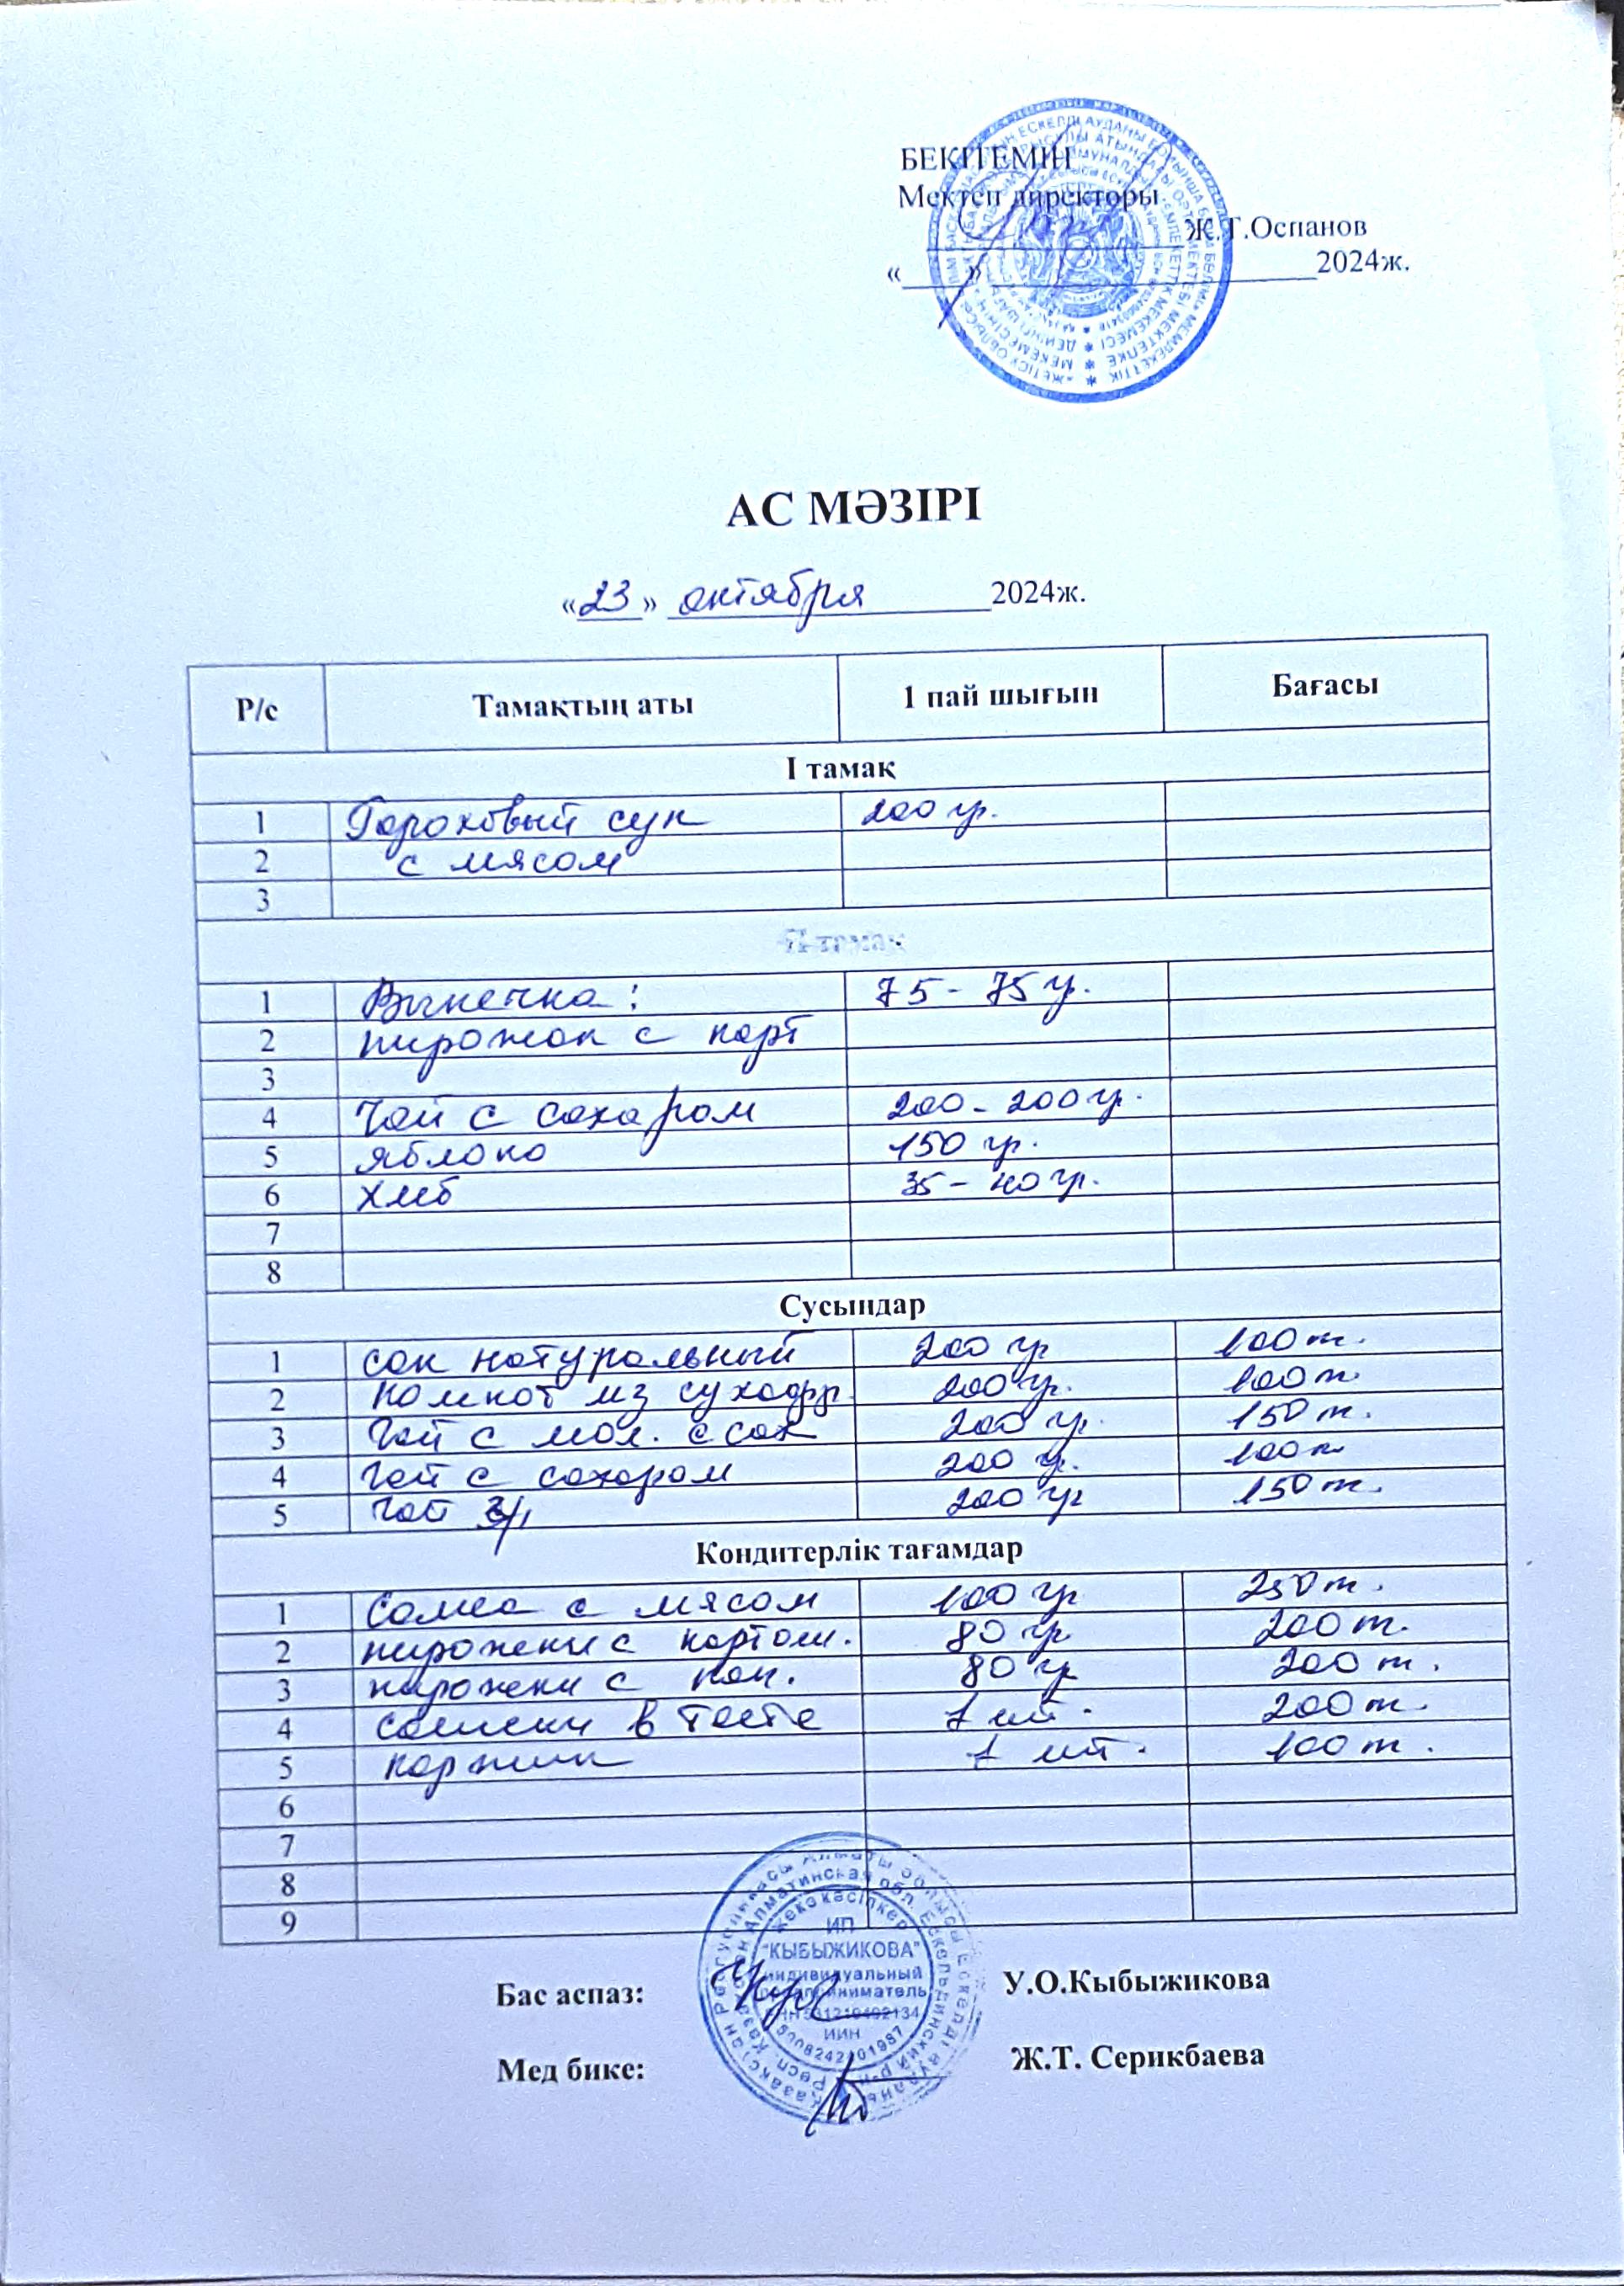 БЕКІТЕМІН
Мектеп директоры
Ж.Т.Оспанов
«____»____________2024ж.
АС МӘЗІРІ
«23» октября 2024ж.
Р/с Тамақтың аты 1 пай шығын Бағасы
І тамақ
1 Гороховый суп 200 гр.
2 с мясом
3
ІІ тамақ
1 Выпечка: 75-75 гр.
2 пирожок с карт
3
4 Чай с сахаром 200-200 гр.
5 яблоко 150 гр.
6 хлеб 35-40 гр.
7
8
Сусындар
1 сок натуральный 200 гр 100 т.
2 компот из сухофр. 200 гр. 100 т.
3 Чай с мол. с сах 200 гр. 150 т.
4 Чай с сахаром 200 гр. 100 т
5 Чай 200 гр 150 т.
Кондитерлік тағамдар
1 Самса с мясом 100 гр 250 т.
2 пирожки с картош. 80 гр 200 т.
3 пирожки с кап. 80 гр 200 т.
4 сосиски в тесте 1 шт. 200 т.
5 коржик 1 шт. 100 т.
6
7
8
9
жеке кәсіпкер
ИП
"КЫБЫЖИКОВА"
индивидуальный
предприниматель
ИИН
Бас аспаз: У.О.Кыбыжикова
Мед бике: Ж.Т. Серикбаева